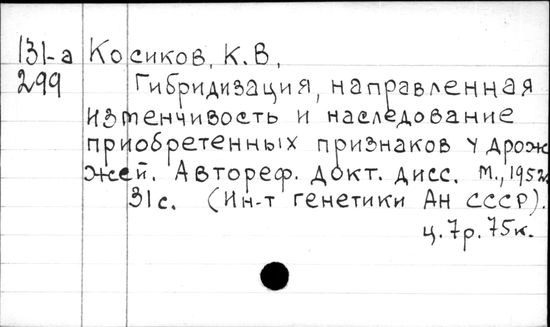 131-а Косиков, К.В,
299 Гибридизация, направленная
изменчивость и наследование
приобретенных признаков у дрож
жей. Автореф. докт. дисс. М., 1952.
31с. (Ин-т генетики Ан СССР).
ц. 7р. 75к.